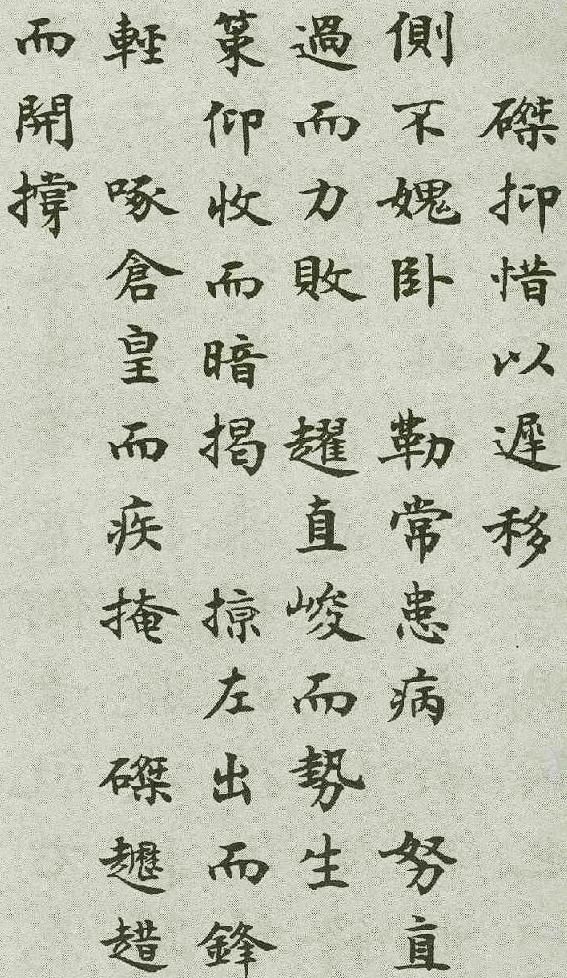 磔抑惜以遲移
側不媿卧 勒常患病 努直
過而力敗 趯直峻而勢生
策仰收而暗揭 掠左出而鋒
輕 啄倉皇而疾掩 磔䟐趞
而開撐